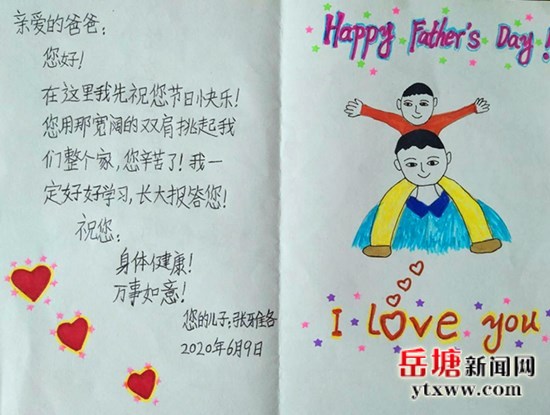 亲爱的爸爸:
您好!
在这里我先祝您节日快乐!
您用那宽阔的双肩挑起我
们整个家,您辛苦了!我一
定好好学习,长大报答您!
祝您:
身体健康!
万事如意!
您的儿子:张雅各
2020年6月9日
Happy Father's Day!
I love you
岳塘新闻网
ytxww.com